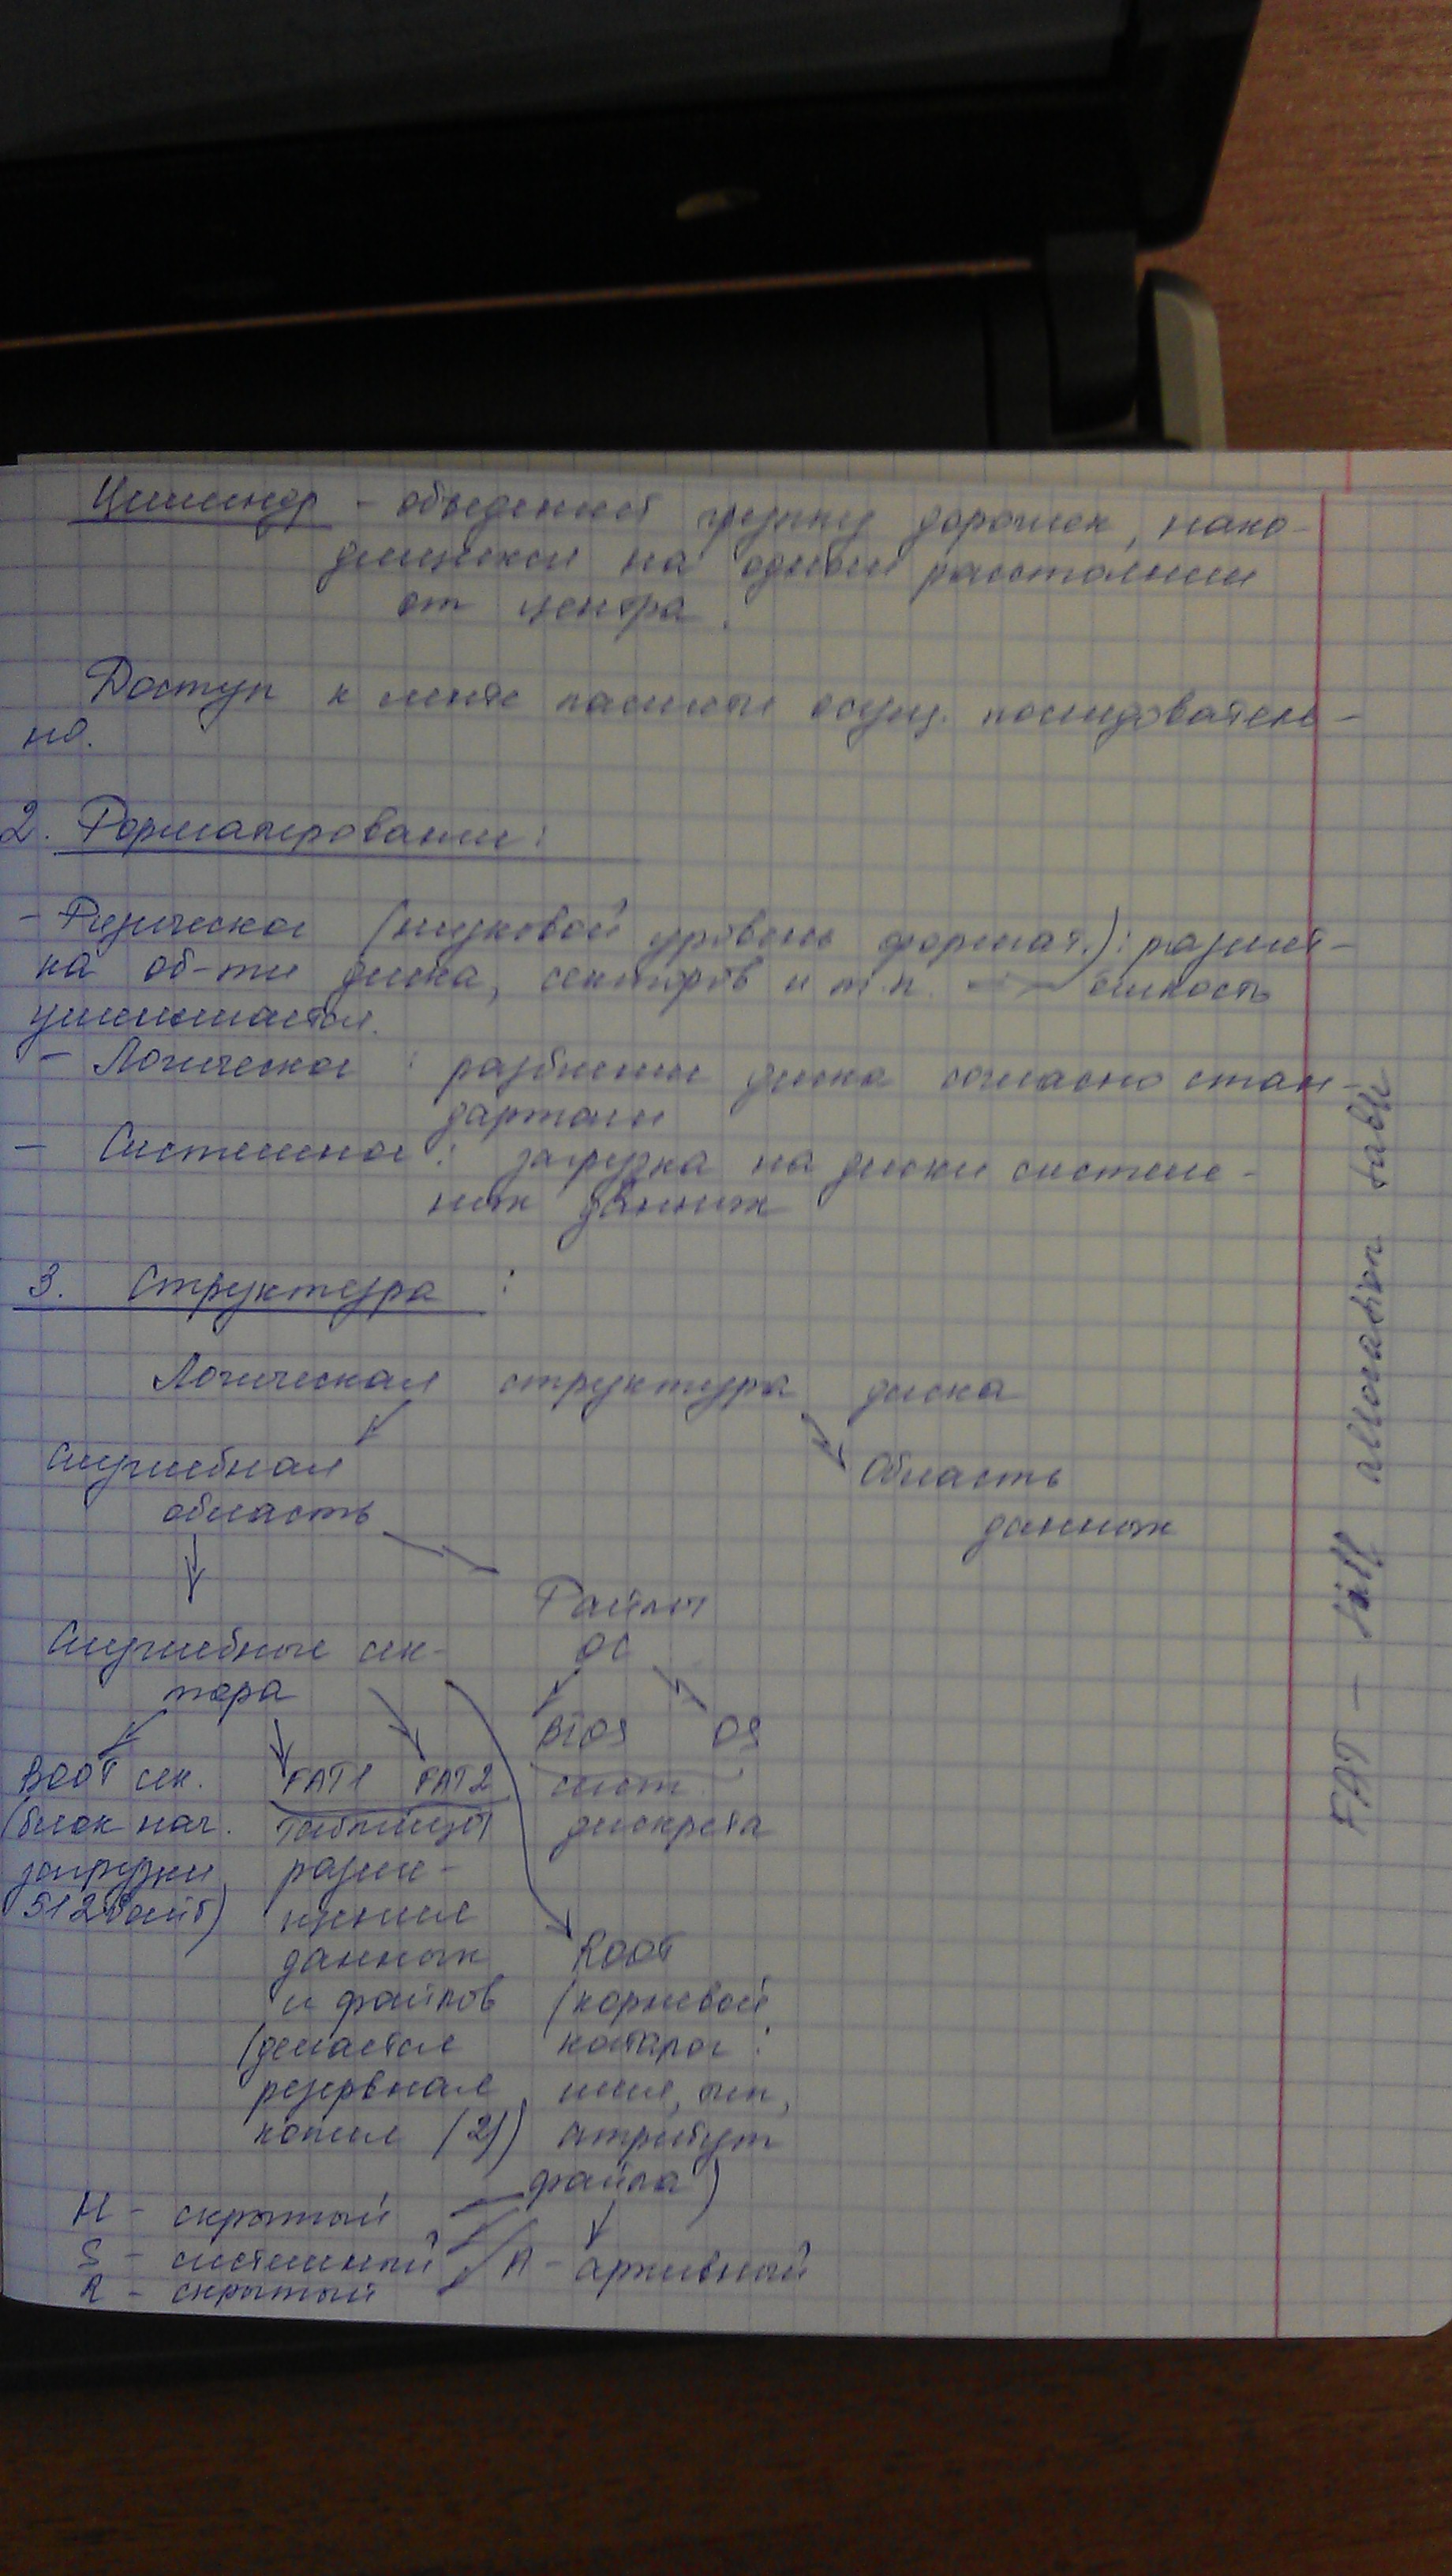 Цилиндр - объеденяет группу дорожек, нахо-
дящихся на одном расстоянии
от центра.
Доступ к ленте памяти осущ. последователь-
но.
2. Форматирование:
- Физическое (низковой уровень формат.): размет-
ка об-ти диска, секторов и т.п. => ёмкость
уменьшается.
- Логическое : разбиение диска согласно стан-
дартами
- Системное : загрузка на диски систем-
ных данных
3. Структура :
Логическая структура диска
Служебная
область
Область
данных
Файлы
ОС
Служебные сек-
тора
BIOS OS
BOOT сек.
(блок нач.
загрузки
512 байт)
FAT1 FAT2
таблицы
разме-
щения
данных
и файлов
(делается
резервная
копия (2))
сист.
дискрета
ROOT
(корневой
каталог :
имя, тип,
атрибут
файла)
H - скрытый
S - системный
R - скрытый
A - архивный
FAT - fill allocation table